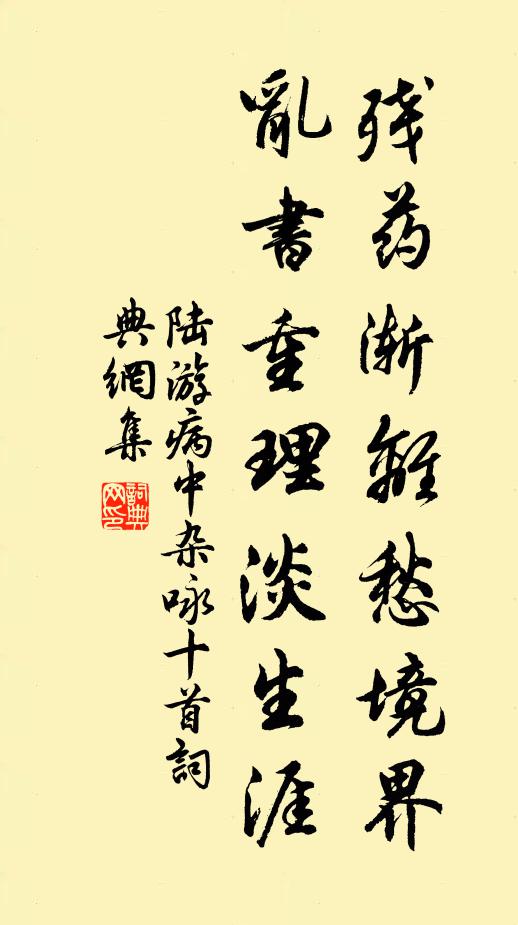 残药渐離愁境界
亂書重理淡生涯
陆游病中杂咏十首詞
典網集
詞典
网印